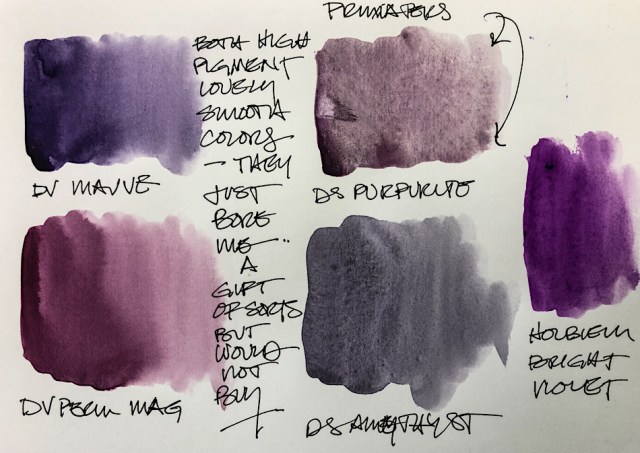 PRIMATEKS
BOTH HIGH
PIGMENT
LOVELY
SMOOTH
COLORS
— THEY
JUST
BORE
ME ..
A
GIFT
OF SORTS
BUT
WOULD
NOT
BUY
DV MAUVE
DS PURPURITE
DV PERM MAG
DS AMETHYST
HOLBIEN
BRIGHT
VIOLET